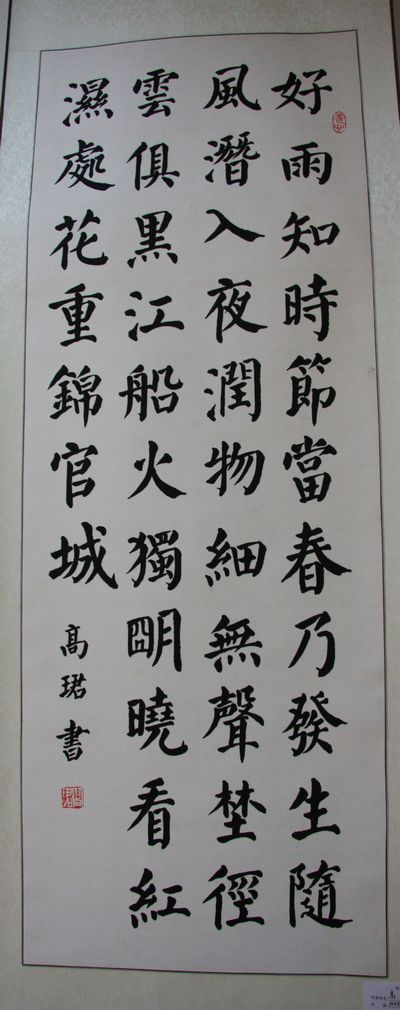 好雨知時節當春乃發生隨
風潛入夜潤物細無聲埜徑
雲俱黑江船火獨朙曉看紅
濕處花重錦官城
髙珺書